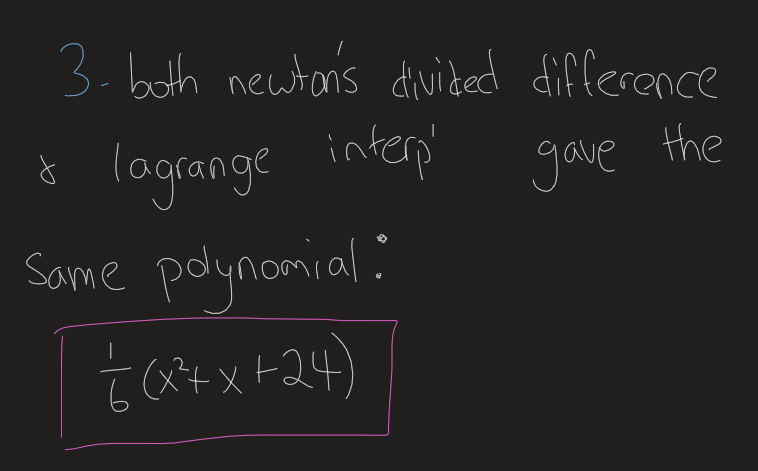 3. both newton's divided difference
& lagrange interp' gave the
same polynomial:
1/6 (x²+x+24)